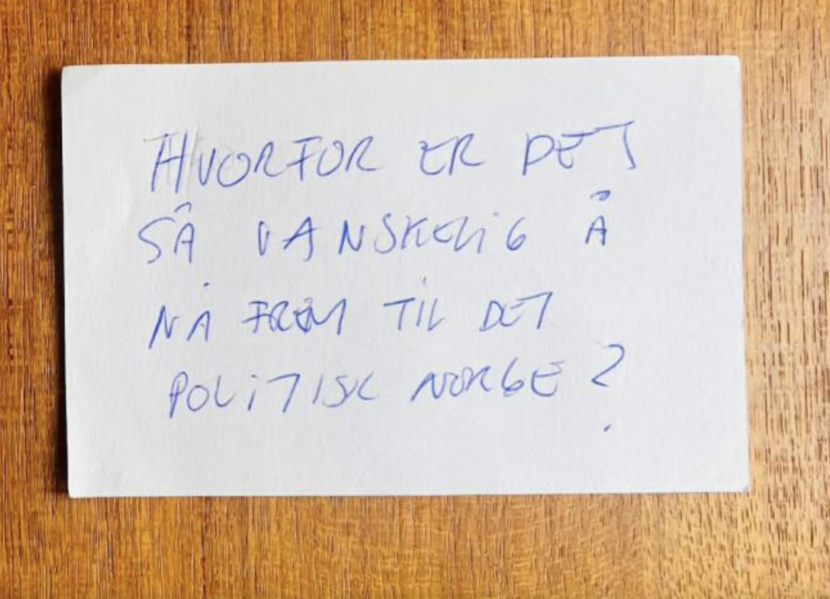 HVORFOR ER DET
SÅ VANSKELIG Å
NÅ FREM TIL DET
POLITISK NORGE?